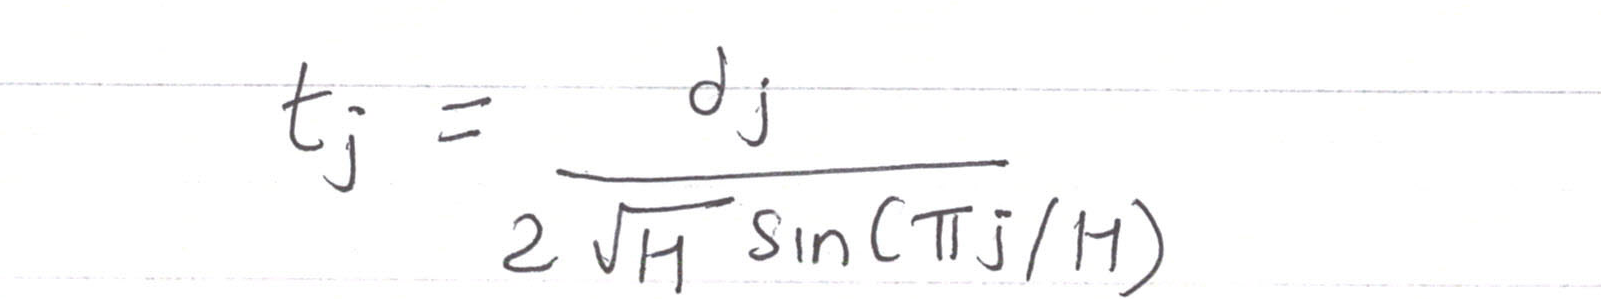 t_j = \frac{d_j}{2\sqrt{H} \sin(\pi j/H)}